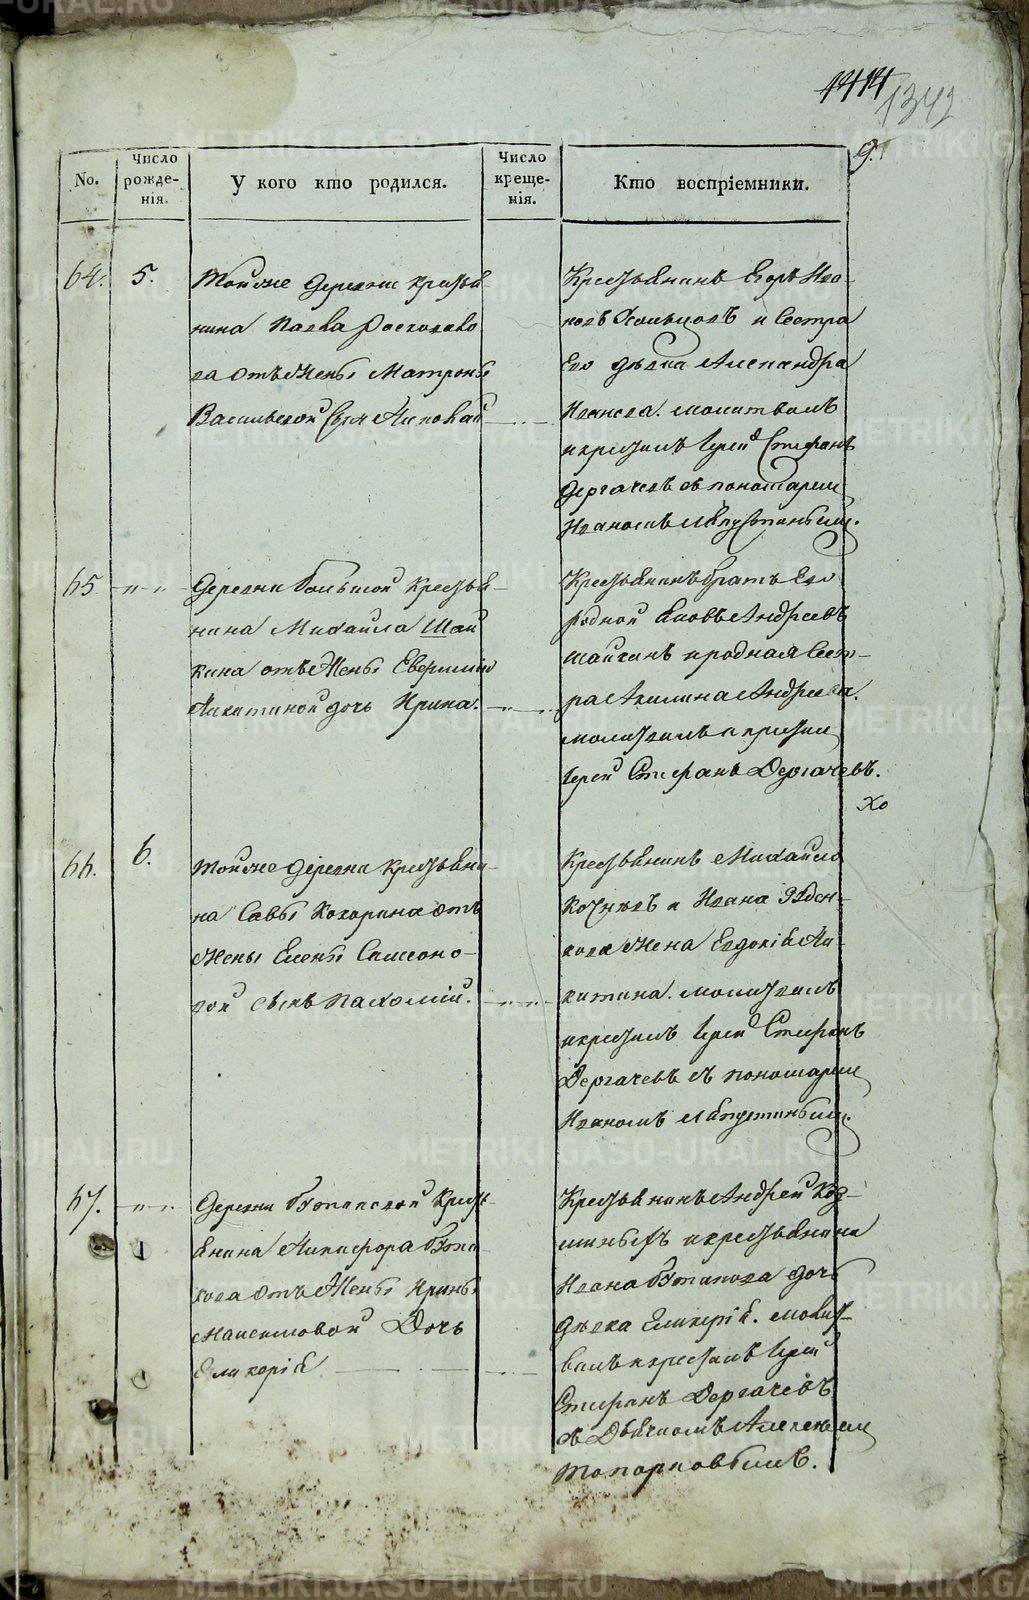 1414
1342
9.
No.
Число рожде-нія.
У кого кто родился.
Число креще-нія.
Кто воспріемники.
64.
5.
Тойже деревни крестья-
нина Павла
ва отъ жены Матроны
Васильевой сын
Крестьянинъ Егоръ Ива-
новъ и сестра
Его девка Александра
Иванова. молитвалъ
и крестилъ Іерей Стефанъ
Дергачевъ съ пономарем
Иваномъ Лапустинымъ.
65
Деревни крестья-
нина Михайла Шай
кина отъ жены
Никитиной дочь Ирина.
Крестьянинъ братъ Его
родной Андреевъ
Шайкинъ и родная сест-
ра Акилина Андреева.
молитвалъ и крестил
Іерей Стефанъ Дергачевъ.
Хо
66.
6.
Тойже деревни крестьяни-
на Савы Кокорина отъ
жены Елены Самсоно-
вой сынъ Пахомій.
Крестьянинъ Михайло
и Ивана
кова жена Евдокія Ни-
китина. молитвалъ
и крестилъ Іерей Стефанъ
Дергачевъ съ пономарем
Иваномъ Лапустинымъ.
67.
Деревни кресть-
янина Никифора Бута-
кова отъ жены Ирины
Максимовой Дочь
Гликерія
Крестьянинъ Андрей Коз-
миныхъ и крестьянина
Ивана Бутакова дочь
девка Гликерія. молит-
валъ и крестилъ Іерей
Стефанъ Дергачевъ
съ Дьячкомъ Алексеем
Топорковымъ.
METRIKI.GASO-URAL.RU